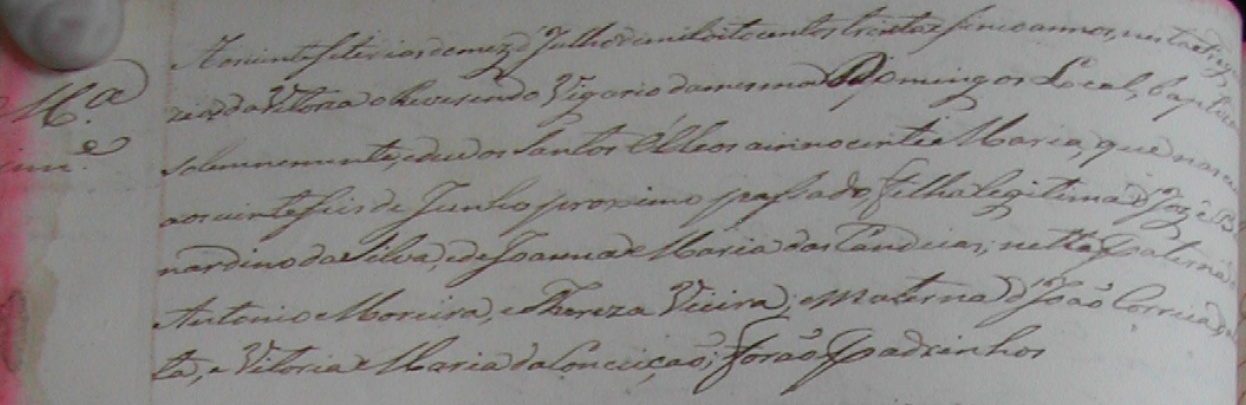 Aos vinte sete dias do mez d'Julho de mil oitocentos trinta e sinco annos, nesta Freg
zia da Vitoria o Reverendo Vigario da mesma Domingos Leal, baptizo
M.ª
solemnemente, e deu os Santos Olleos a innocente Maria, que nasceo
aos vinte seis de Junho proximo passado, filha legitima d'Joze B
nardino da Silva, e de Joanna Maria das Candeias; netta Paterna
Antonio Moreira, e Thereza Vieira; e Materna d'João Correia
ta, e Vitoria Maria da Conceição; forão Padrinhos